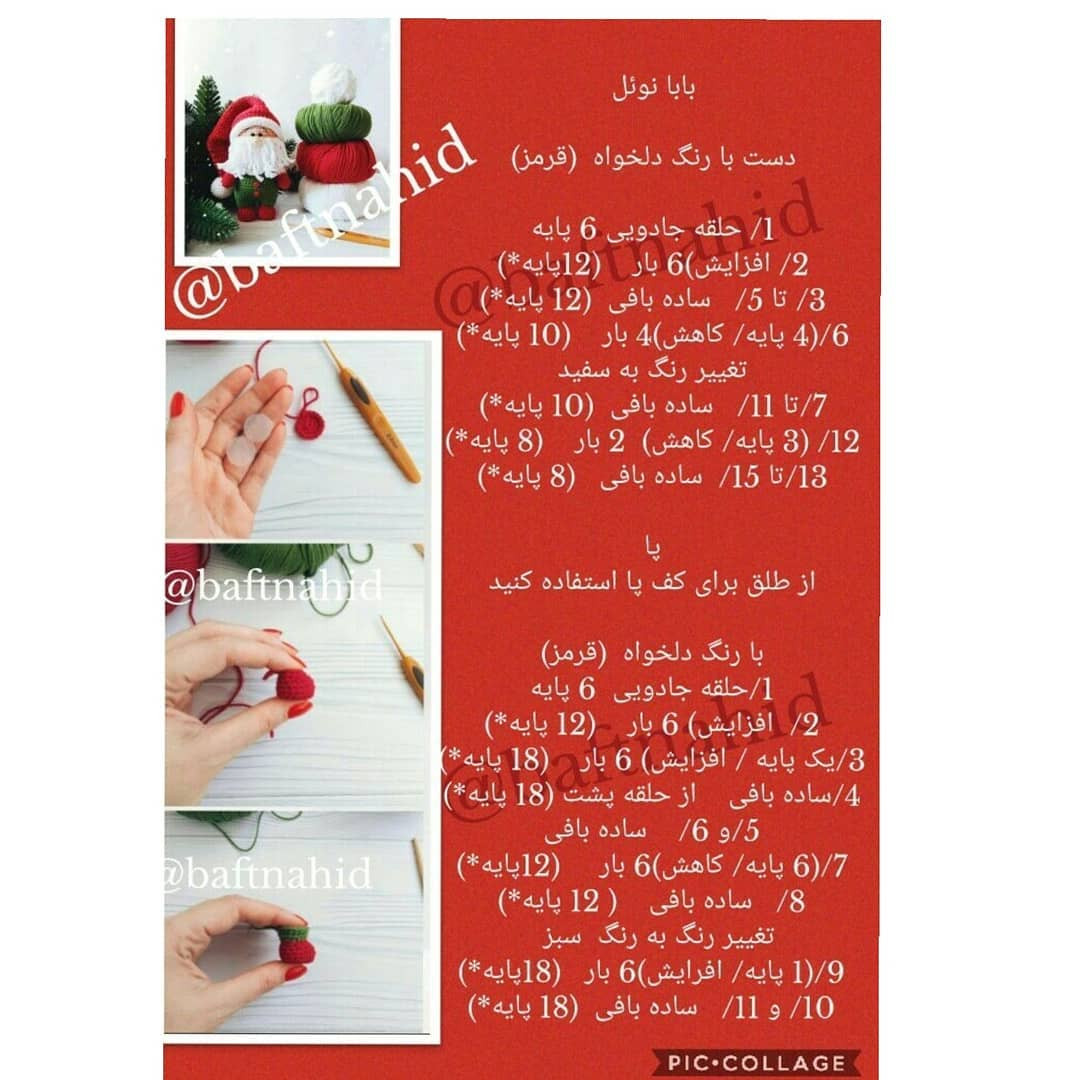 بابا نوئل
دست با رنگ دلخواه (قرمز)
1/ حلقه جادویی 6 پایه
2/ افزایش)6 بار (12پایه*)
3/ تا 5/ ساده بافی (12 پایه*)
6/(4 پایه/ کاهش)4 بار (10 پایه*)
تغییر رنگ به سفید
7/تا 11/ ساده بافی (10 پایه*)
12/ (3 پایه/ کاهش) 2 بار (8 پایه*)
13/تا 15/ ساده بافی (8 پایه*)
پا
از طلق برای کف پا استفاده کنید
با رنگ دلخواه (قرمز)
1/حلقه جادویی 6 پایه
2/ افزایش) 6 بار (12 پایه*)
3/یک پایه / افزایش) 6 بار (18 پایه*)
4/ساده بافی از حلقه پشت (18 پایه*)
5/و 6/ ساده بافی
7/(6 پایه/ کاهش)6 بار (12پایه*)
8/ ساده بافی ( 12 پایه*)
تغییر رنگ به رنگ سبز
9/(1 پایه/ افرایش)6 بار (18پایه*)
10/ و 11/ ساده بافی (18 پایه*)
@baftnahid
@baftnahid
@baftnahid
@baftnahid
@baftnahid
PIC•COLLAGE